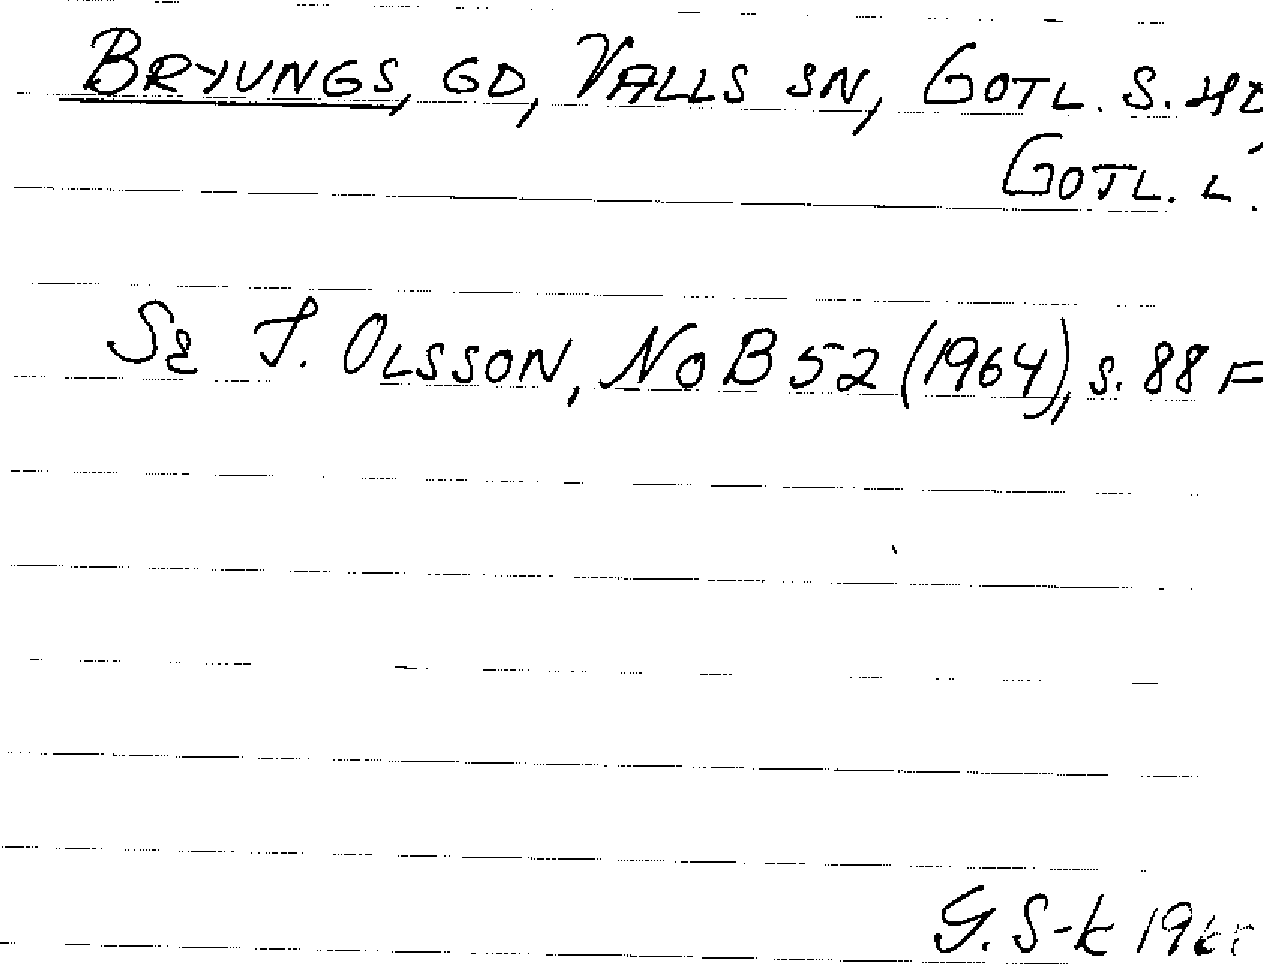 BRYUNGS, GD, VALLS SN, GOTL. S. HD
GOTL. L.
SE I. OLSSON, NoB 52 (1964), S. 88 F
G. S-k